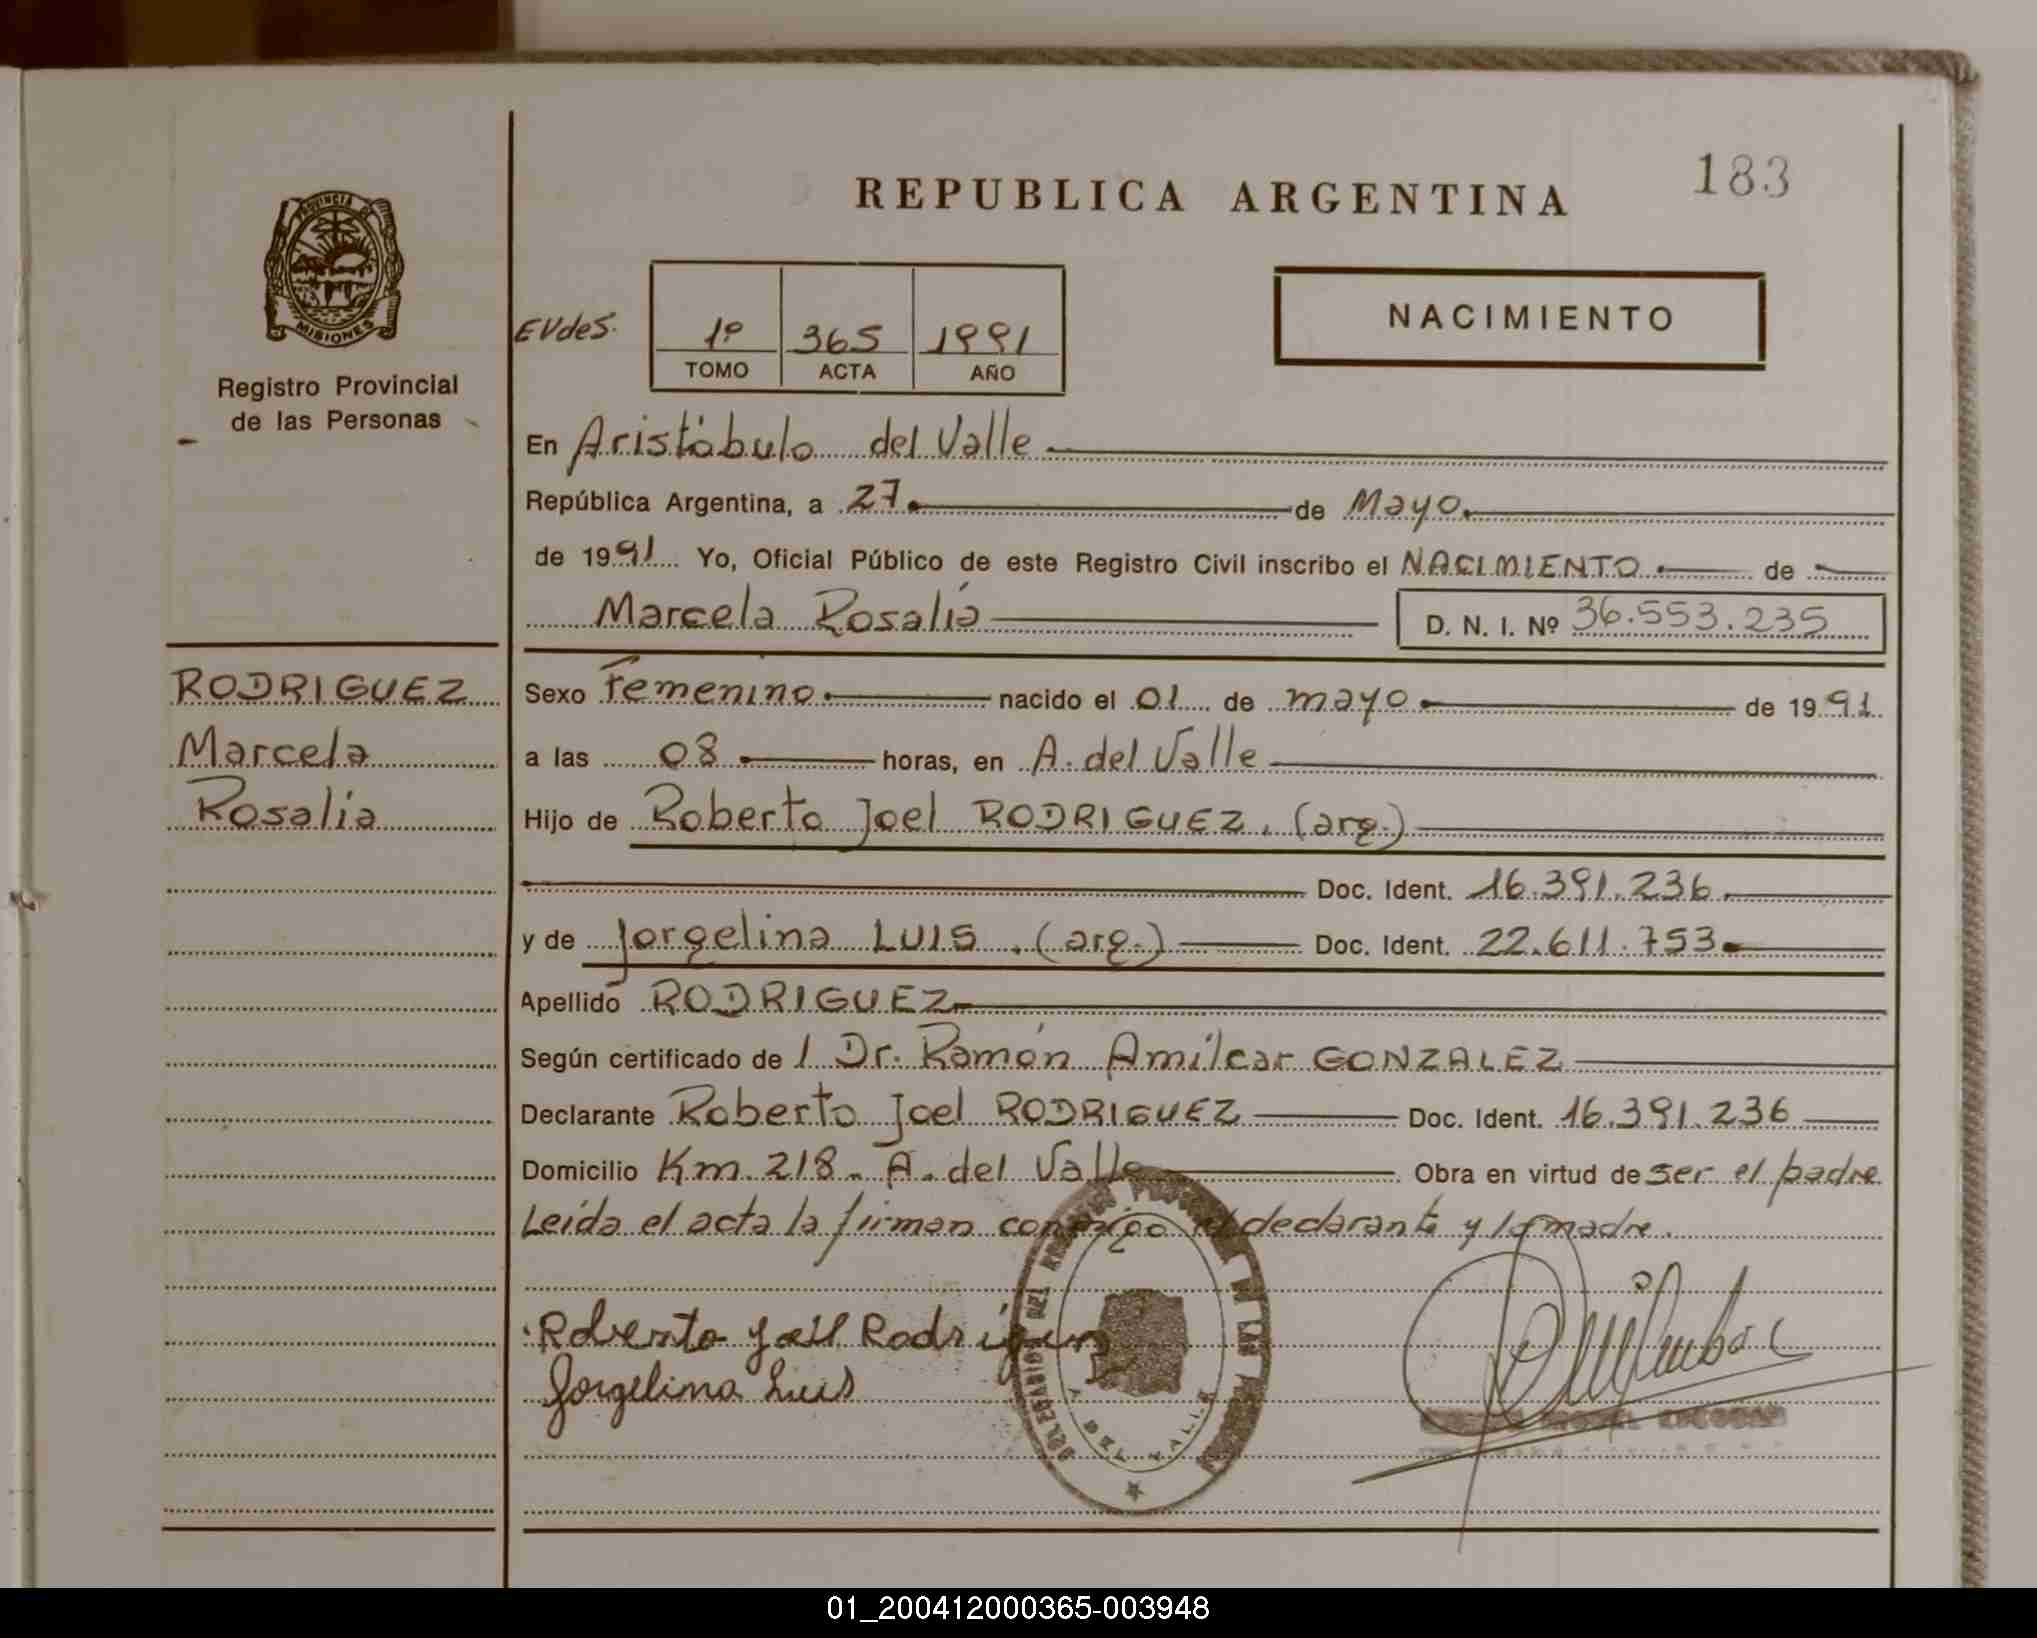 183
REPUBLICA ARGENTINA
PROVINCIA DE
MISIONES
Registro Provincial
de las Personas
NACIMIENTO
EVdeS.
1º 365 1991
TOMO ACTA AÑO
En Aristóbulo del Valle
República Argentina, a 27 de Mayo
de 1991 Yo, Oficial Público de este Registro Civil inscribo el NACIMIENTO de
Marcela Rosalía D. N. I. Nº 36.553.235
RODRIGUEZ
Marcela
Rosalía
Sexo Femenino nacido el 01 de mayo de 1991
a las 08 horas, en A. del Valle
Hijo de Roberto Joel RODRIGUEZ. (arg.)
Doc. Ident. 16.391.236.
y de Jorgelina LUIS. (arg.) Doc. Ident. 22.611.753
Apellido RODRIGUEZ
Según certificado de l Dr. Ramón Amílcar GONZALEZ
Declarante Roberto Joel RODRIGUEZ Doc. Ident. 16.391.236
Domicilio Km. 218. A. del Valle Obra en virtud de ser el padre
Leída el acta la firman conmigo el declarante y la madre.
Roberto Joel Rodriguez
Jorgelina Luis
01_200412000365-003948